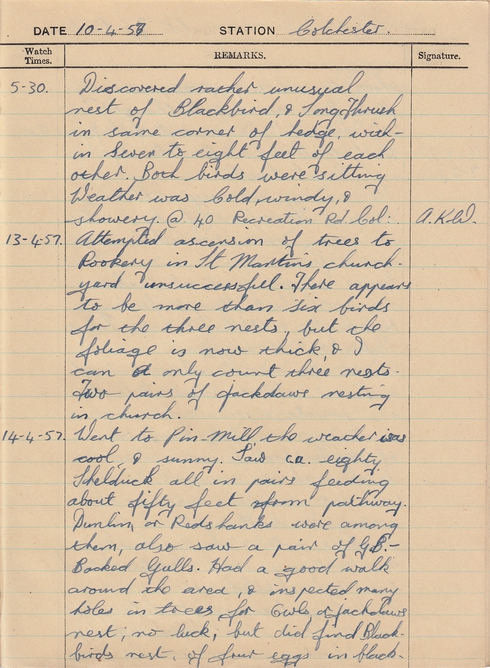 DATE 10-4-57 STATION Colchester.
Watch Times. REMARKS. Signature.
5-30. Discovered rather unusual
nest of Blackbird, & Song Thrush
in same corner of hedge, with-
in Seven to eight feet of each
other. Both birds were sitting
Weather was Cold, windy, &
showery. @ 40 Recreation Rd Col: A.K.W.
13-4-57. Attempted ascension of trees to
Rookery in St Martins church-
yard unsuccessful. There appears
to be more than six birds
for the three nests, but the
foliage is now thick, & I
can only count three nests.
Two pairs of jackdaws nesting
in church.
14-4-57. Went to Pin-Mill, the weather was
cool, & sunny. Saw ca. eighty
Shelduck all in pairs feeding
about fifty feet from pathway.
Dunlin, or Redshanks were among
them, also saw a pair of G.B.-
Backed Gulls. Had a good walk
around the area, & inspected many
holes in trees for Owls or jackdaws
nest, no luck, but did find Black-
birds nest, of four eggs in black-